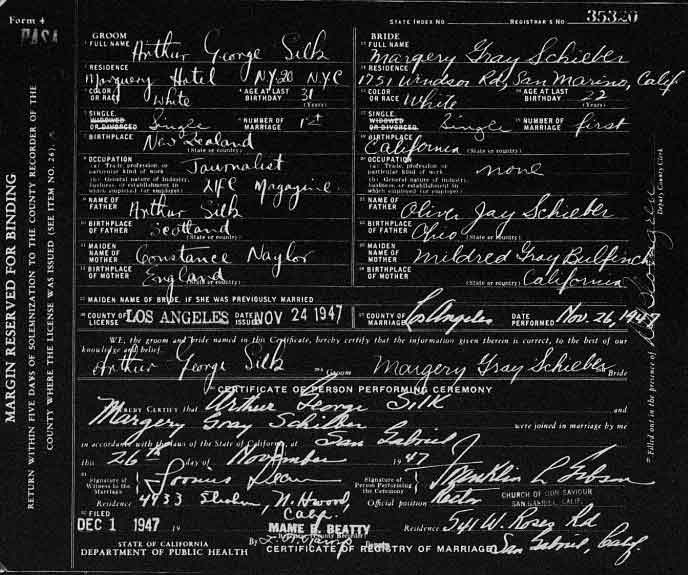 Form 4
STATE INDEX NO.
REGISTRAR'S NO. 35320
GROOM
FULL NAME Arthur George Silk
RESIDENCE
Marguery Hotel N.Y. 20 N.Y.C
COLOR OR RACE White AGE AT LAST BIRTHDAY 31 (Years)
SINGLE WIDOWED OR DIVORCED Single NUMBER OF MARRIAGE 1st
BIRTHPLACE New Zealand
(State or country)
OCCUPATION Journalist
(a) Trade, profession or particular kind of work
(b) General nature of industry, business, or establishment in which employed (or employer) LIFE Magazine
NAME OF FATHER Arthur Silk
BIRTHPLACE OF FATHER Scotland
(State or country)
MAIDEN NAME OF MOTHER Constance Naylor
BIRTHPLACE OF MOTHER England
(State or country)
BRIDE
FULL NAME
Margery Gray Schieber
RESIDENCE
1751 Windsor Rd, San Marino, Calif
COLOR OR RACE White AGE AT LAST BIRTHDAY 22 (Years)
SINGLE WIDOWED OR DIVORCED Single NUMBER OF MARRIAGE first
BIRTHPLACE
California (State or country)
OCCUPATION none
(a) Trade, profession or particular kind of work
(b) General nature of industry, business, or establishment in which employed (or employer)
NAME OF FATHER Oliver Jay Schieber
BIRTHPLACE OF FATHER Ohio (State or country)
MAIDEN NAME OF MOTHER Mildred Gray Bulfinch
BIRTHPLACE OF MOTHER California
(State or country)
MAIDEN NAME OF BRIDE, IF SHE WAS PREVIOUSLY MARRIED
COUNTY OF LICENSE LOS ANGELES DATE ISSUED NOV 24 1947
COUNTY OF MARRIAGE Los Angeles DATE PERFORMED Nov. 26, 1947
WE, the groom and bride named in this Certificate, hereby certify that the information given therein is correct, to the best of our
knowledge and belief.
Arthur George Silk Groom Margery Gray Schieber Bride
CERTIFICATE OF PERSON PERFORMING CEREMONY
I HEREBY CERTIFY that Arthur George Silk and
Margery Gray Schieber were joined in marriage by me
in accordance with the laws of the State of California, at San Gabriel
this 26th day of November 1947
Signature of Witness to the Marriage Loomis Dean
Signature of Person Performing the Ceremony Franklin L Gibson
Residence 4933 N. Hwood, Calif.
Official position Rector
CHURCH OF OUR SAVIOUR
SAN GABRIEL, CALIF.
FILED
DEC 1 1947 19
MAME B. BEATTY
By
Residence 541 W. Roses Rd
San Gabriel, Calif.
STATE OF CALIFORNIA
DEPARTMENT OF PUBLIC HEALTH
CERTIFICATE OF REGISTRY OF MARRIAGE
MARGIN RESERVED FOR BINDING
RETURN WITHIN FIVE DAYS OF SOLEMNIZATION TO THE COUNTY RECORDER OF THE
COUNTY WHERE THE LICENSE WAS ISSUED (SEE ITEM NO. 26).
Filled out in the presence of
Deputy County Clerk